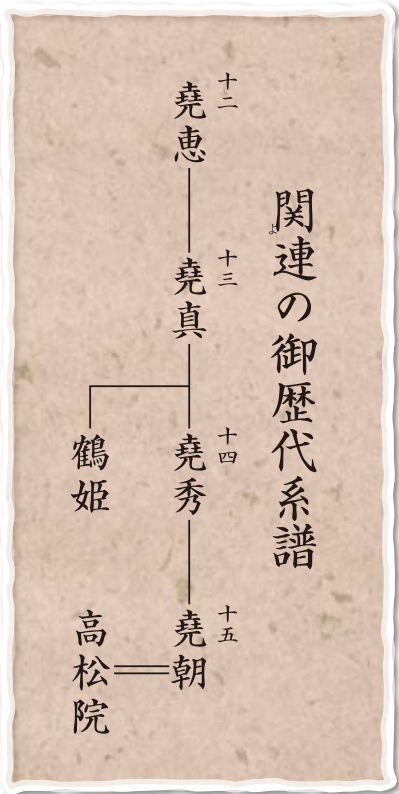 関連の御歴代系譜
よ
十二
堯恵
十三
堯真
十四
堯秀
十五
堯朝
鶴姫
高松院